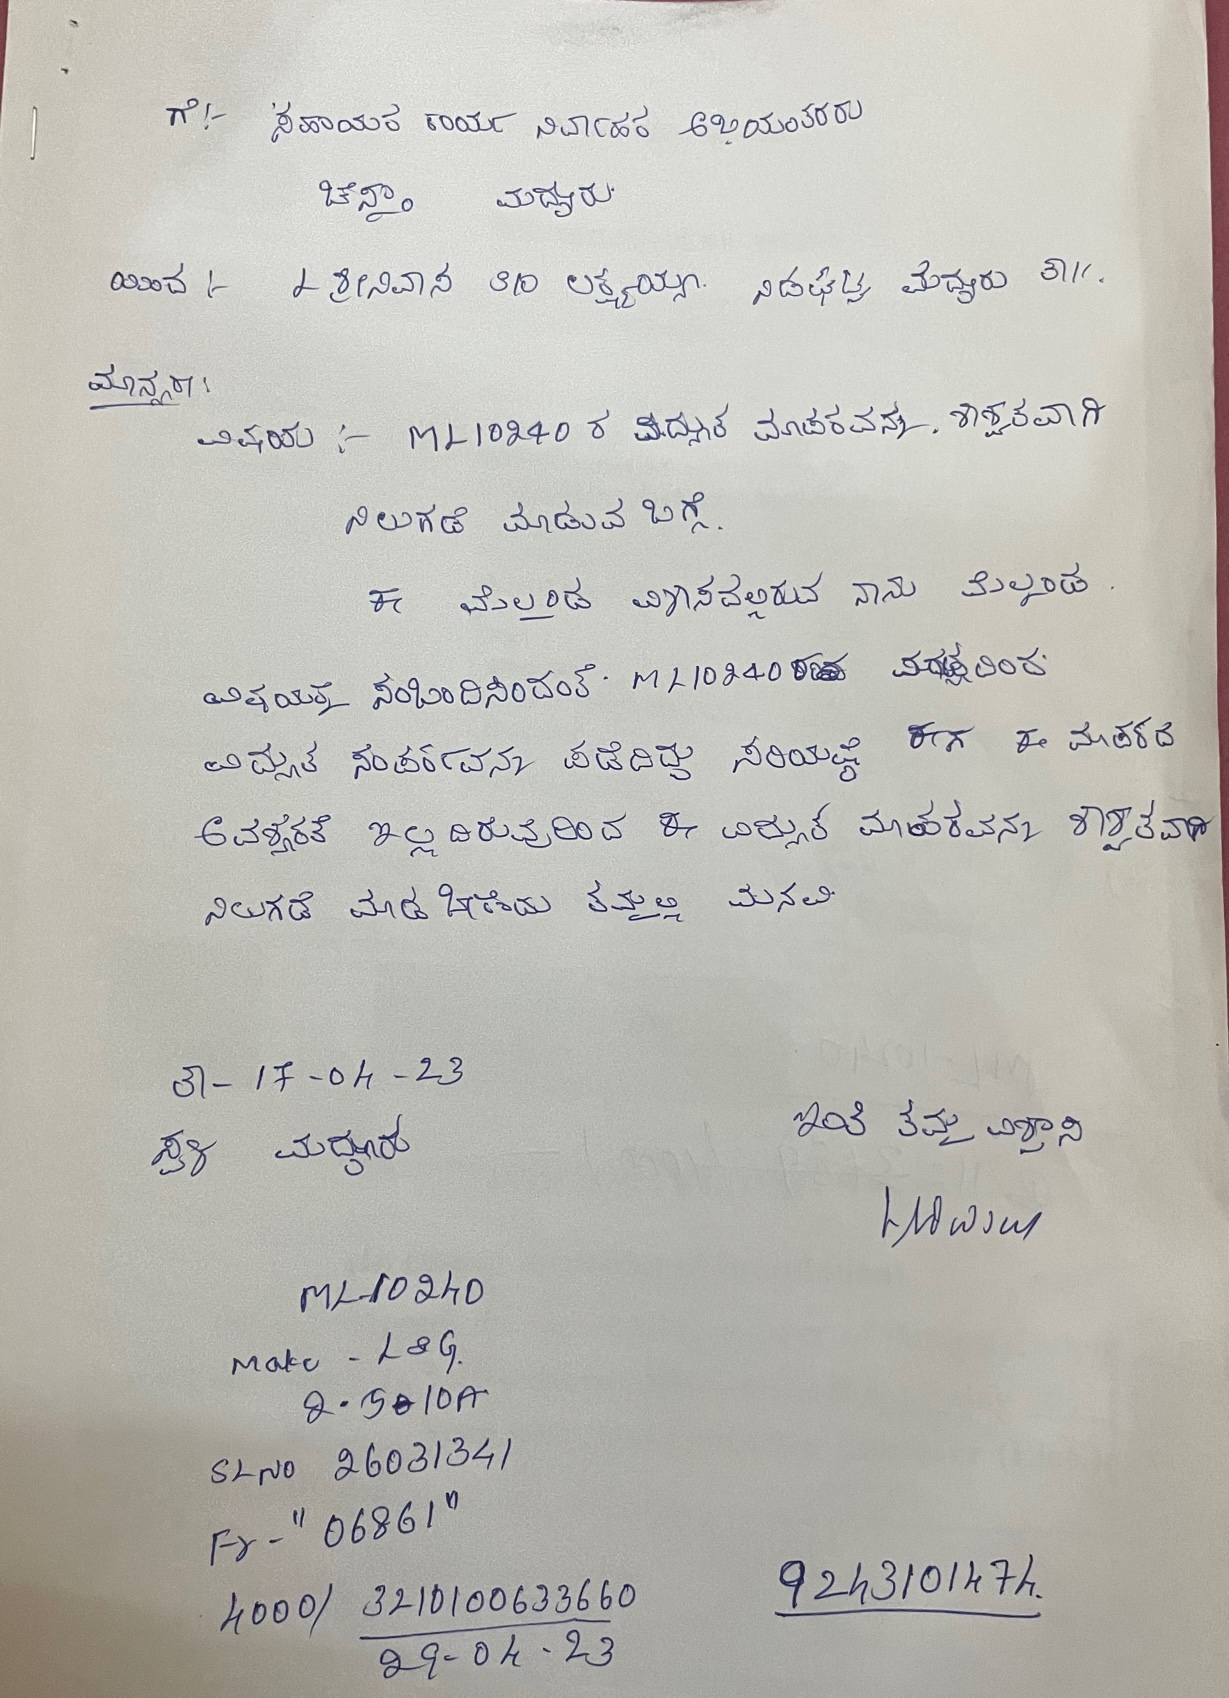 ಗೆ:- ಸಹಾಯಕ ಕಾರ್ಯ ನಿರ್ವಾಹಕ ಅಭಿಯಂತರರು
ಮದ್ದೂರು
ಯಿಂದ :- L ಶ್ರೀನಿವಾಸ S/O ಲಕ್ಷ್ಮಯ್ಯ. ನಿಡಘಟ್ಟ ಮದ್ದೂರು ತಾ||.
ಮಾನ್ಯರೇ:
ವಿಷಯ :- ML10240 ರ ವಿದ್ಯುತ ಮಾಪಕವನ್ನು. ಶಾಶ್ವತವಾಗಿ
ನಿಲುಗಡೆ ಮಾಡುವ ಬಗ್ಗೆ.
ಈ ಮೇಲ್ಕಂಡ ವಿಳಾಸದಲ್ಲಿರುವ ನಾನು ಮೇಲ್ಕಂಡ.
ವಿಷಯಕ್ಕೆ ಸಂಬಂದಿಸಿದಂತೆ. ML10240
ವಿದ್ಯುತ ಸಂಪರ್ಕವನ್ನು ಪಡೆದಿದ್ದು ಸರಿಯಷ್ಟೆ ಈಗ ಈ ಮಾಪಕದ
ಅವಶ್ಯಕತೆ ಇಲ್ಲದಿರುವುದರಿಂದ ಈ ವಿದ್ಯುತ ಮಾಪಕವನ್ನು ಶಾಶ್ವತವಾಗಿ
ನಿಲುಗಡೆ ಮಾಡಬೇಕೆಂದು ತಮ್ಮಲ್ಲಿ ಮನವಿ
ತಾ- 17-04-23
ಇಂತಿ ತಮ್ಮ ವಿಶ್ವಾಸಿ
ಸ್ಥಳ ಮದ್ದೂರು
ML10240
Make - L&G.
2.5-10A
SLNO 26031341
Fr-"06861"
4000/ 3210100633660
9243101474.
29-04-23